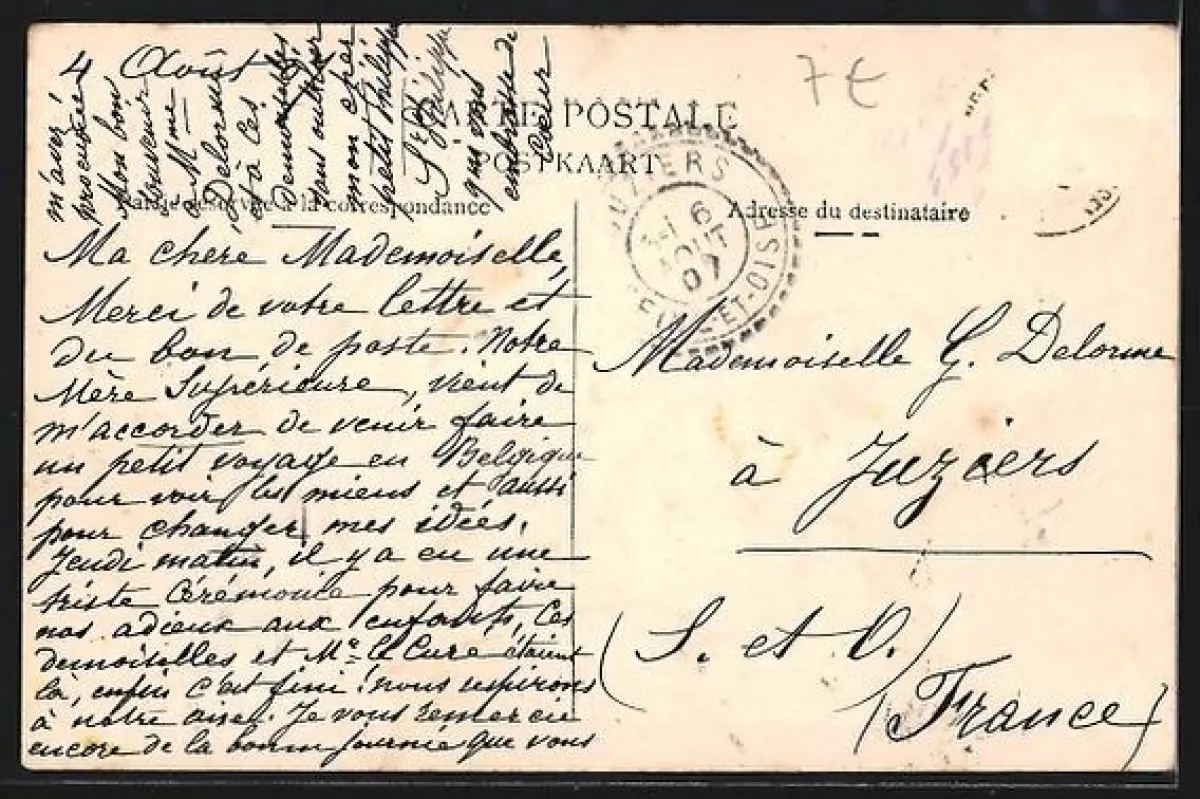 4 Août
CARTE POSTALE
POSTKAART
7 €
Adresse du destinataire
à la correspondance
JUZIERS
6
AOUT
07
SEINE-ET-OISE
Ma chère Mademoiselle,
Merci de votre lettre et
du bon de poste. Notre
Mère Supérieure, vient de
m'accorder de venir faire
un petit voyage en Belgique
pour voir les miens et aussi
pour changer mes idées.
Jeudi matin, il y a eu une
triste Cérémonie pour faire
nos adieux aux enfants, Ces
demoiselles et Mr le Curé étaient
là, enfin c'est fini! nous respirons
à notre aise. Je vous remercie
encore de la bonne journée que vous
m'avez
procurée
Mon bon
souvenir
à Mme
Delorme
et à Ces
demoiselles
sans oublier
mon cher
petit Philippe
St Philippe
qui vous
embrasse de
cœur
Mademoiselle G. Delorme
à Juziers
(S. et O.)
(France)